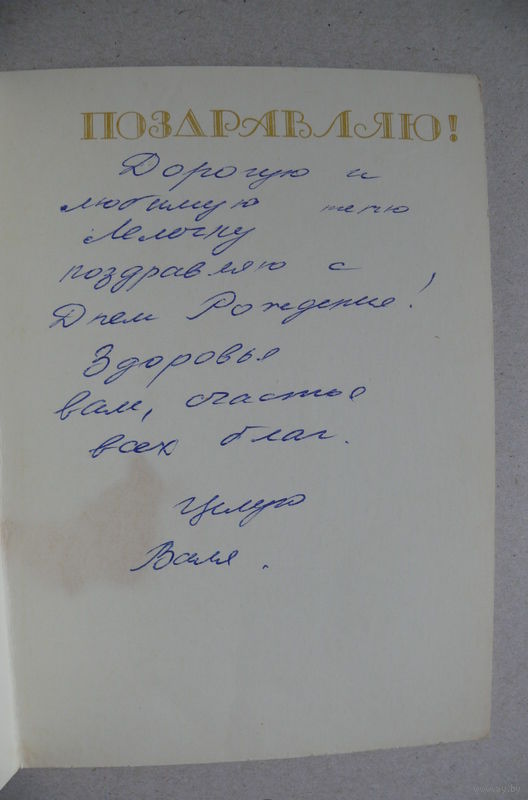 ПОЗДРАВЛЯЮ!
Дорогую и
любимую тетю
Лелечку
поздравляю с
Днем Рождения!
Здоровья
вам, счастья
всех благ.
Целую
Валя.